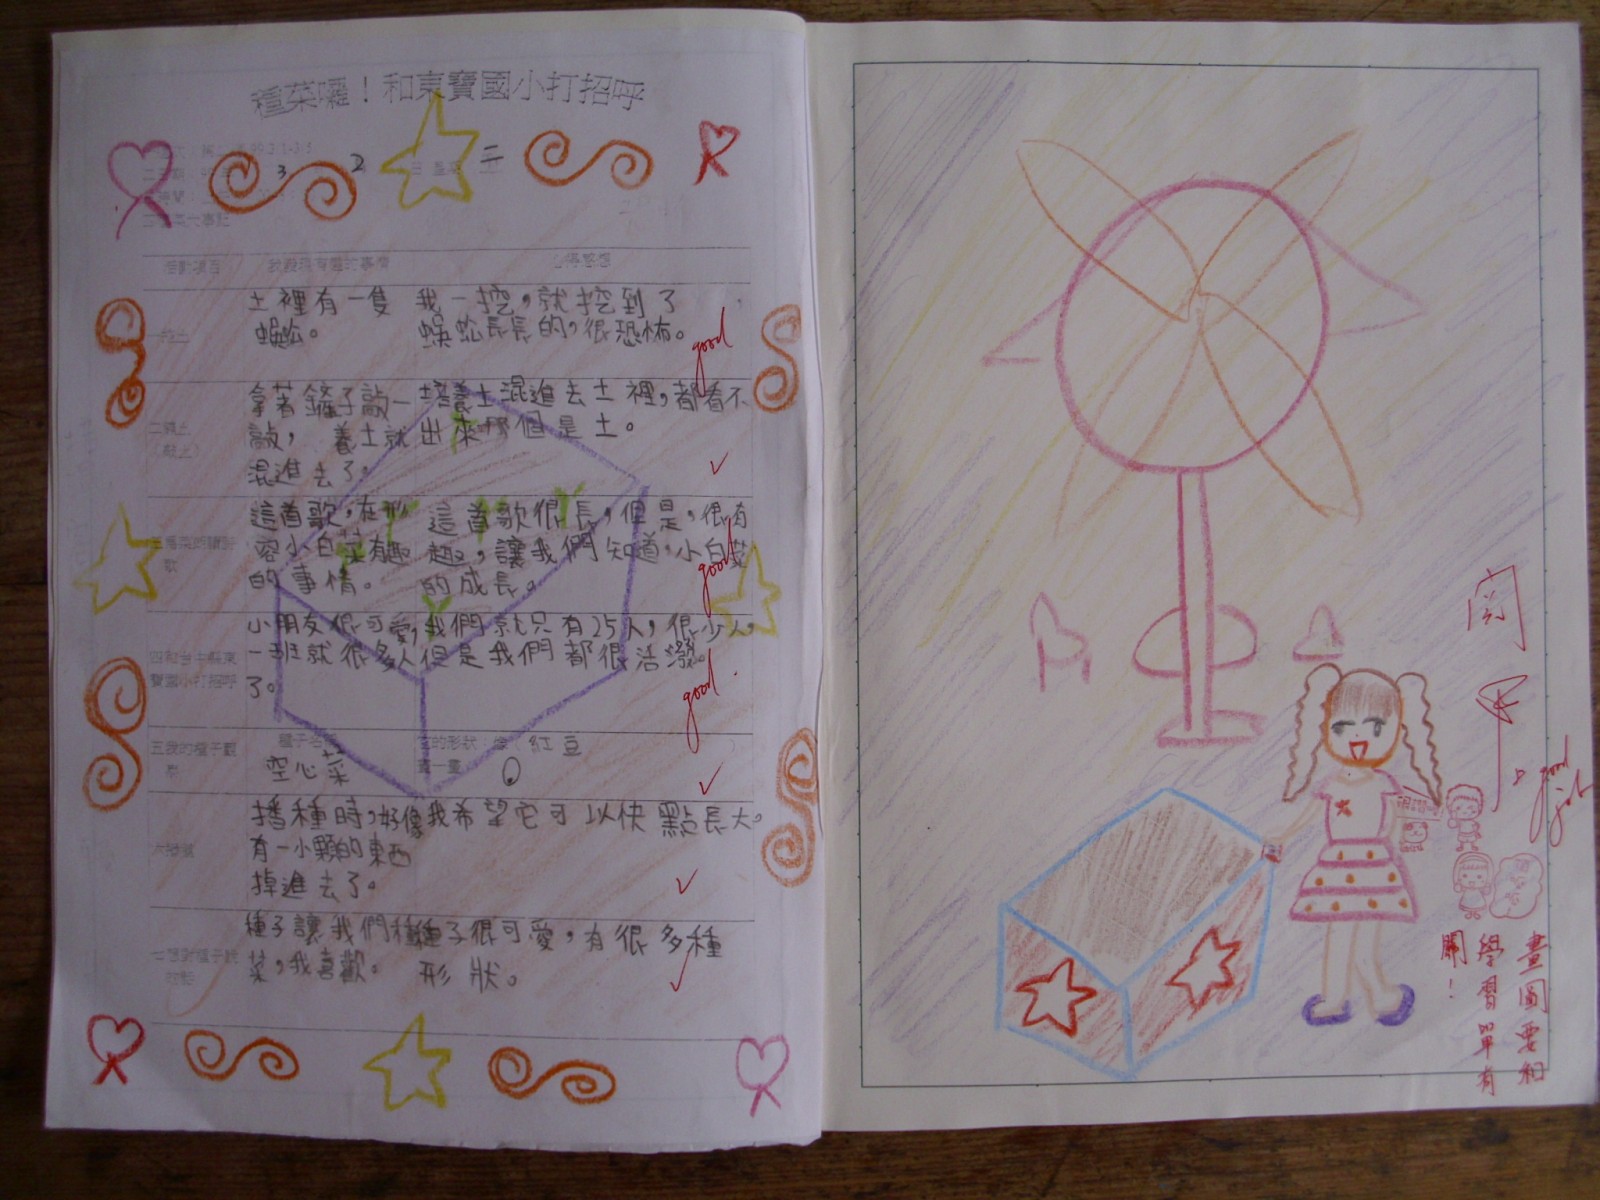 種菜囉！和東寶國小打招呼
3 2 三
活動項目 我發現有趣的事情 心得感想
土裡有一隻 我一挖，就挖到了
蜈蚣。 蜈蚣長長的，很恐怖。
good
拿著鏟子敲一 培養土混進去土裡，都看不
敲， 養土就 出來哪個是土。
混進去了。
這首歌，在形 這首歌很長，但是，很有
容小白菜有趣 趣，讓我們知道，小白菜
的事情。 的成長。
good
小朋友很可愛， 我們就只有25人，很少人，
一班就很多人 但是我們都很活潑。
了。
四和台中縣東
寶國小打招呼
good.
五我的種子觀
察
種子名
空心菜
的形狀 像（紅豆 ）
畫一畫
播種時，好像 我希望它可以快點長大。
有一小顆的東西
掉進去了。
七想對種子說
種子讓我們種 種子很可愛，有很多種
菜，我喜歡。 形狀。
閱
good
job
畫圖要和
學習單有
關！